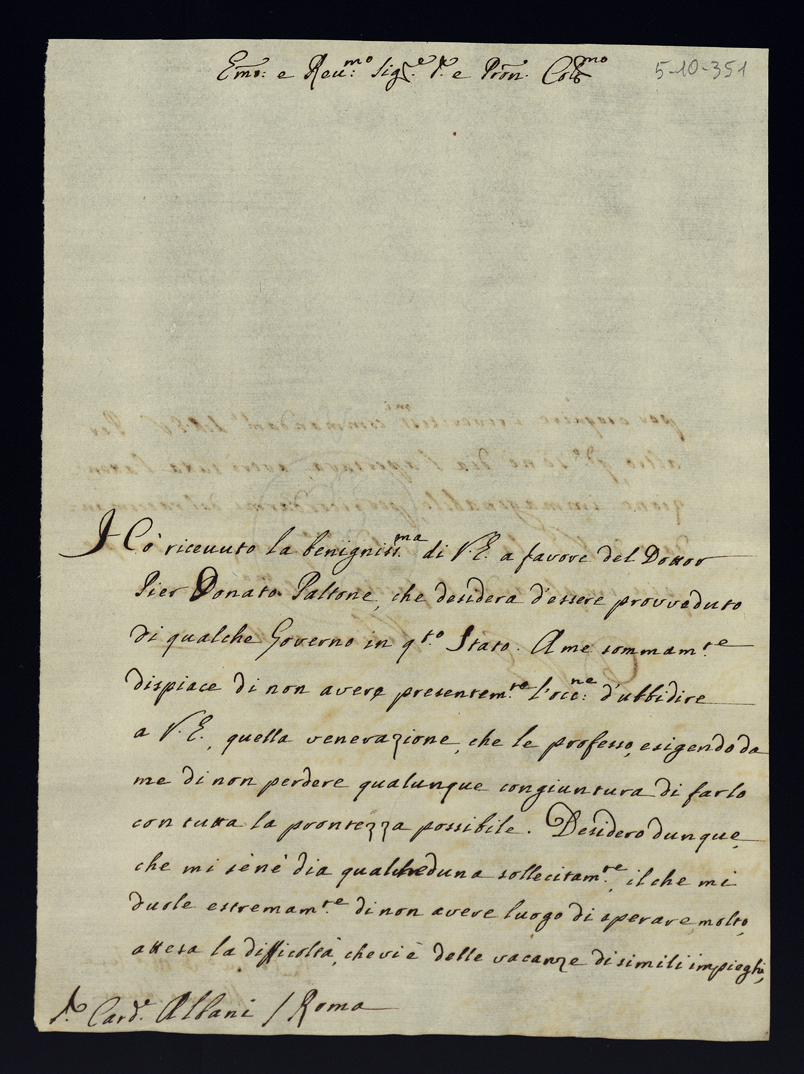 Em͠o: e Reu:mo Sig:re P.re e Pron͠: Col:mo
5-10-351
Hò riceuuto la benigniss:ma di V.E. a favore del Dottor
Pier Donato Paltone, che desidera d'essere provveduto
di qualche Governo in q.to Stato. A me sommam.te
dispiace di non avere presentem.te l'occ:ne d'ubbidire
a V.E., quella venerazione, che le professo, esigendo da
me di non perdere qualunque congiuntura di farlo
con tutta la prontezza possibile. Desidero dunque,
che mi sene dia qualcheduna sollecitam.te, il che mi
duole estremam.te di non avere luogo di sperare molto,
attesa la difficoltà, che vi è delle vacanze di simili impieghi,
Card.e Albani / Roma